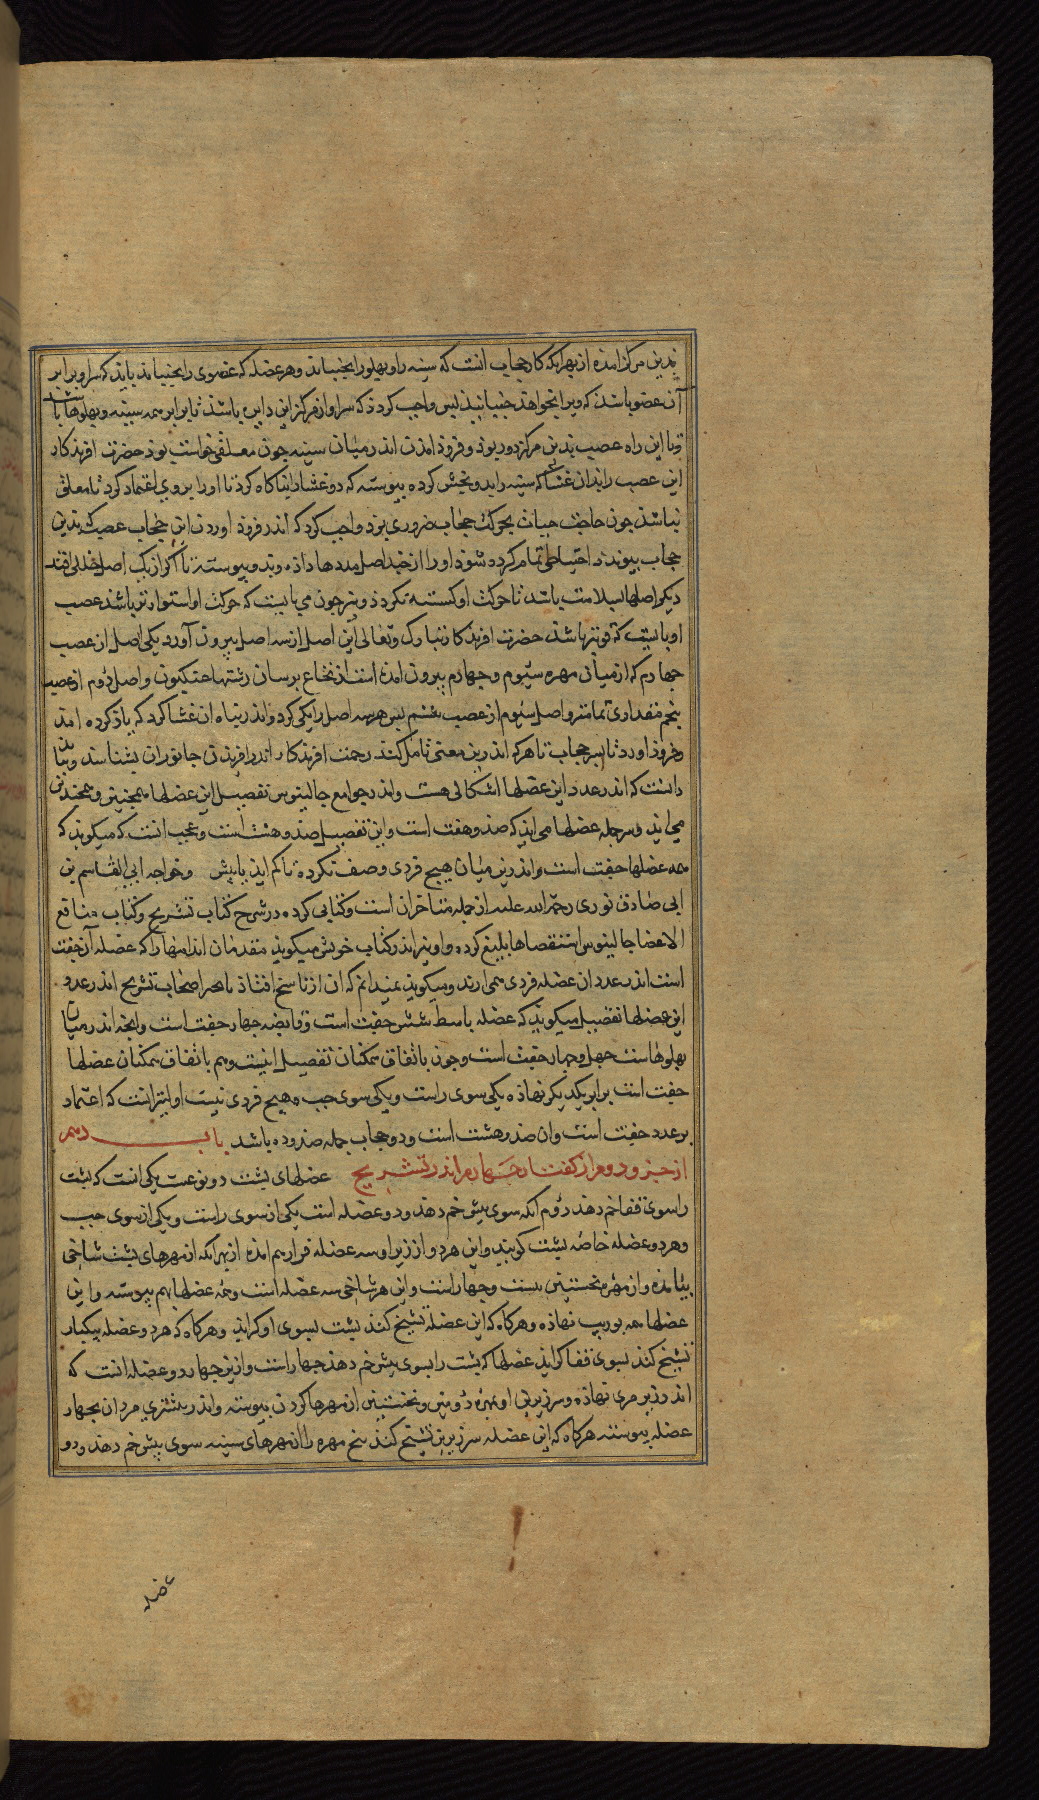 بدین مرکز امده از بهر انکه کار حجاب انست که سینه را و پهلو را بجنباند و هر عضله که عضوی را بجنباند باید که سر او برابر
آن عضو باشد که ویرا بخواهد جنبانید بس واجب کرد که سر او از مرکز این دایره باشد تا برابر همه سینه و پهلوها باشد
و با این راه عصب بدین مرکز دور بود و فروذ امدن اندر میان سینه چون معلقی خواست بود حضرت افریدکار
این عصب را بدان غشا که سینه را بدو بخش کرده پیوسته که دو غشا را تکیاه کرد تا اورا بر وی اعتماد کرد تا معلق
نباشد چون حاجت حیات بحرکت حجاب ضروری بود واجب کرد که اندر فروذ اوردن این حجاب عصب که بدین
حجاب پیوندد احتیاطی تمام کرده شود او را از چند اصل مددها داده و بدو پیوسته تا اکر از یک اصل خللی افتد
دیکر اصلها سلامت باشد تا حرکت او کسسته نکردد و نیز چون می بایست که حرکت او استوارتر باشد عصب
او بایست که قویتر باشد حضرت افریدکار تبارک و تعالی این اصل از سه اصل بیرون آورد یکی اصل از عصب
چهارم که از میان مهره سیوم و چهارم بیرون امده است از نخاع برسان رشتها عنکبوت و اصل دوم از عصب
پنجم مقداری تمامتر و اصل سیوم از عصب ششم بس هر سه اصل را یکی کرد و اندر پناه ان غشا کرد که یاد کرده امد
و فروذ اورد تا بسر حجاب تا هر که اندرین معنی تامل کند رحمت افریدکار اندر افریدن جانوران بشناسد و بباید
دانست که اندر عدد این عضلها اشکالی هست و اندر جوامع جالینوس تفصیل این عضلها همچنین و همچندین
می اید و سر جمله عضلها می اید که صد و هفت است و این تفصیل صد و هشت است و عجب انست که میکوید که
همه عضلها جفت است و اندرین میان هیچ فردی وصف نکرده تا کم اید یا بیش و خواجه ابی القاسم بن
ابی صادق نوری رحمة الله علیه از جمله متاخران است و کتابی کرده در شرح کتاب تشریح و کتاب منافع
الاعضا جالینوس استقصاها بلیغ کرده و او نیز اندر کتاب خویش میکوید متقدمان اندامها را که عضله آن جفت
است اندر عدد ان عضله فردی همی ارند و میکوید نمیدانم که ان از ناسخ افتاذ یا هم اصحاب تشریح اندر عدد
این عضلها تفصیل میکوید که عضله باسط شش جفت است و قابضه چهار جفت است و انچه اندر میان
پهلوهاست چهل و چهار جفت است و چون باتفاق همکنان تفصیل اینست و هم باتفاق همکنان عضلها
جفت است برابر یکدیکر نهاده یکی سوی راست و یکی سوی چپ و هیچ فردی نیست اولیتر انست که اعتماد
بر عدد جفت است و ان صد و هشت است و دو حجاب جمله صد و ده باشد باب دهم
از جزو دوم از کفتار چهارم اندر تشریح عضلهای پشت دو نوعست یکی انست که پشت
را سوی قفا خم دهد دوم انکه سوی پیش خم دهد و دو عضله است یکی از سوی راست و یکی از سوی چپ
و هر دو عضله خاصه پشت کویند و این هر دو از زیر او سه عضله فراهم امده از بهر انکه از مهرهای پشت شاخی
بیامده و از مهره نخستین بیست و چهار است و این هر شاخی سه عضله است و همه عضلها بهم پیوسته و این
عضلها همه بوریب نهاده و هر کاه که این عضله تشنج کند پشت بسوی او کراید و هر کاه که هر دو عضله بیکبار
تشنج کند بسوی قفا کراید عضلها که پشت را بسوی پیش خم دهد چهار است و ازین چهار دو عضله انست که
اندر زیر مری نهاده و سر زبرین او بمهره دومین و نخستین از مهرها کردن پیوسته و اندر بیشتری مردان بچهار
عضله پیوسته هرکاه که این عضله سر زبرین تشنج کند پنج مهره را از مهرهای سینه سوی پیش خم دهد و دو
عضله